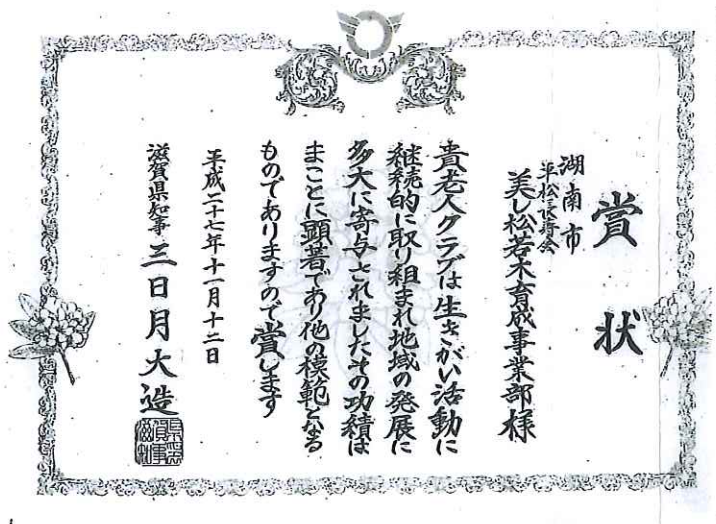 賞状
湖南市
平松長寿会
美し松若木育成事業部様
貴老人クラブは生きがい活動に
継続的に取り組まれ地域の発展に
多大に寄与されましたその功績は
まことに顕著であり他の模範となる
ものでありますので賞します
平成二十七年十一月十二日
滋賀県知事 三日月大造